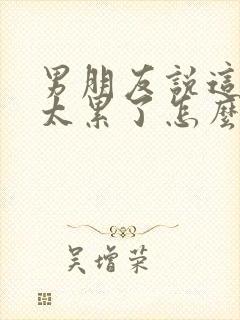 男朋友說這
太累了怎麼
吳增荣